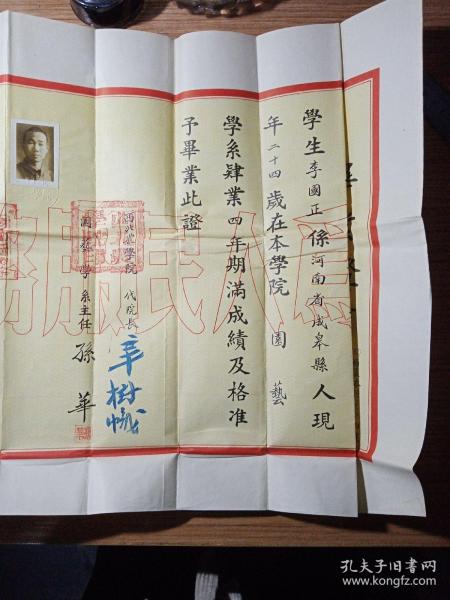 學生李國正係河南省成皋縣人現
年二十四歲在本學院園藝
學系肄業四年期滿成績及格准
予畢業此證
西北農學院 代院長 辛樹幟
園藝學系主任 孫華
爲人民服務
孔夫子旧书网
www.kongfz.com